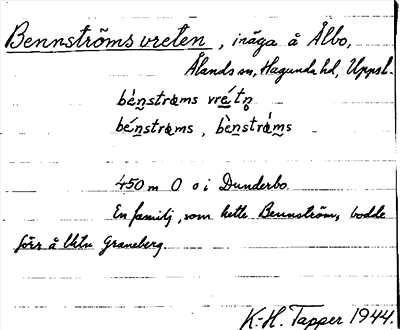 Bennströmsvreten, inäga å Ålbo,
Ålands sn, Hagunda hd, Uppsl.
bènstrøms vrétn̥
bénstrøms, bènstrǿms
450 m O o i Dunderbo.
En familj, som hette Bennström, bodde
förr å Utu Graneberg.
K.-H. Tapper 1944.